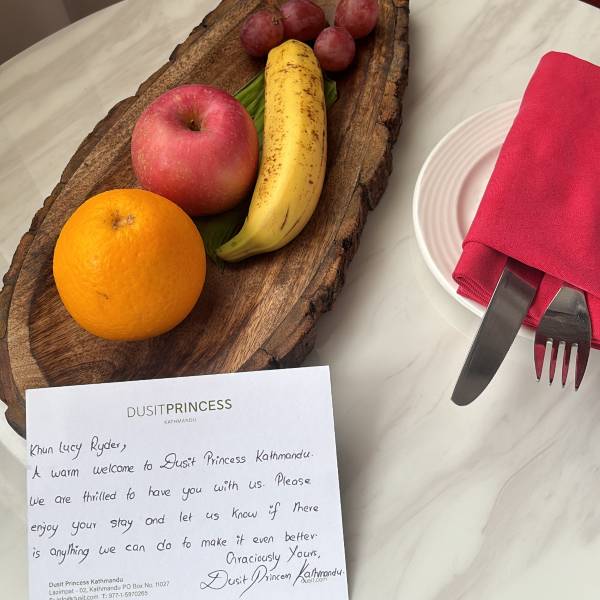 DUSITPRINCESS
KATHMANDU
Khun Lucy Ryder,
A warm welcome to Dusit Princess Kathmandu.
We are thrilled to have you with us. Please
enjoy your stay and let us know if there
is anything we can do to make it even better.
Graciously Yours,
Dusit Princess Kathmandu.
Dusit Princess Kathmandu
Lazimpat - 02, Kathmandu PO Box No. 11027
T: 977-1-5970265
dusit.com